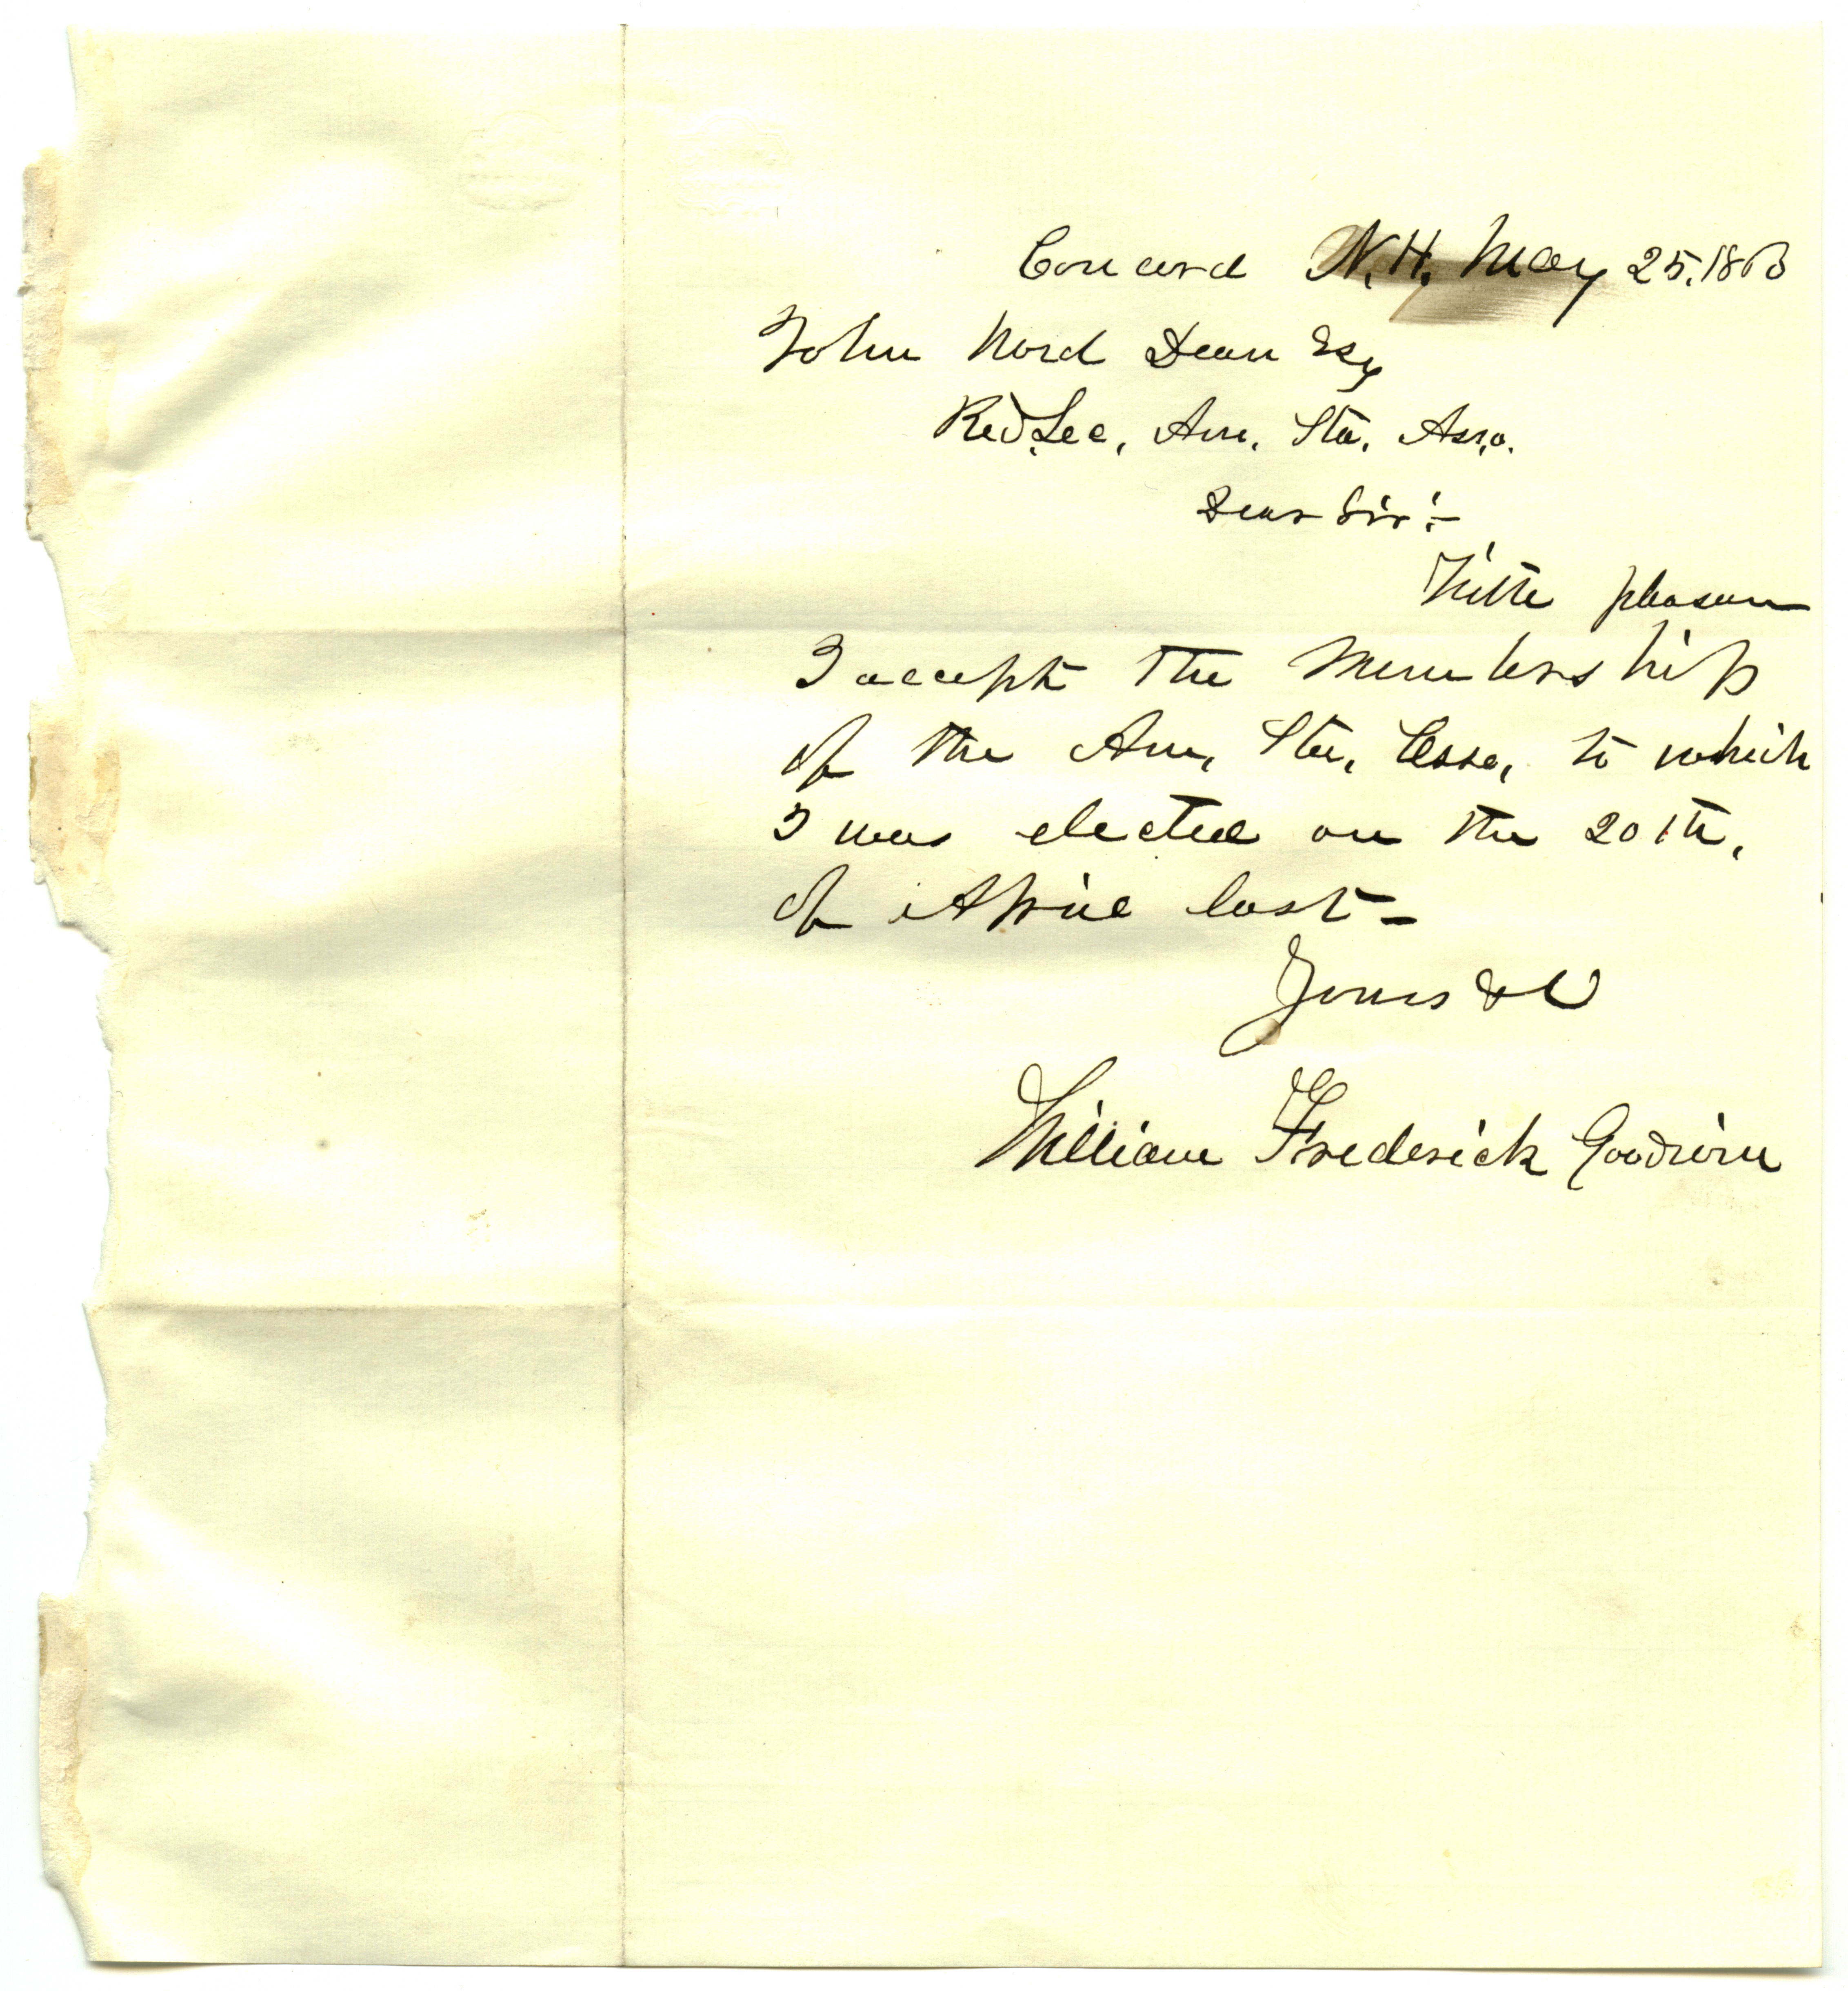 Concord N.H. May 25. 1863
John Ward Dean Esq
Rec. Sec. Am. Sta. Asso.
Dear Sir :-
With pleasure
I accept the Membership
of the Am. Sta. Asso. to which
I was elected on the 20th.
of April last -
Yours &c
William Frederick Goodwin